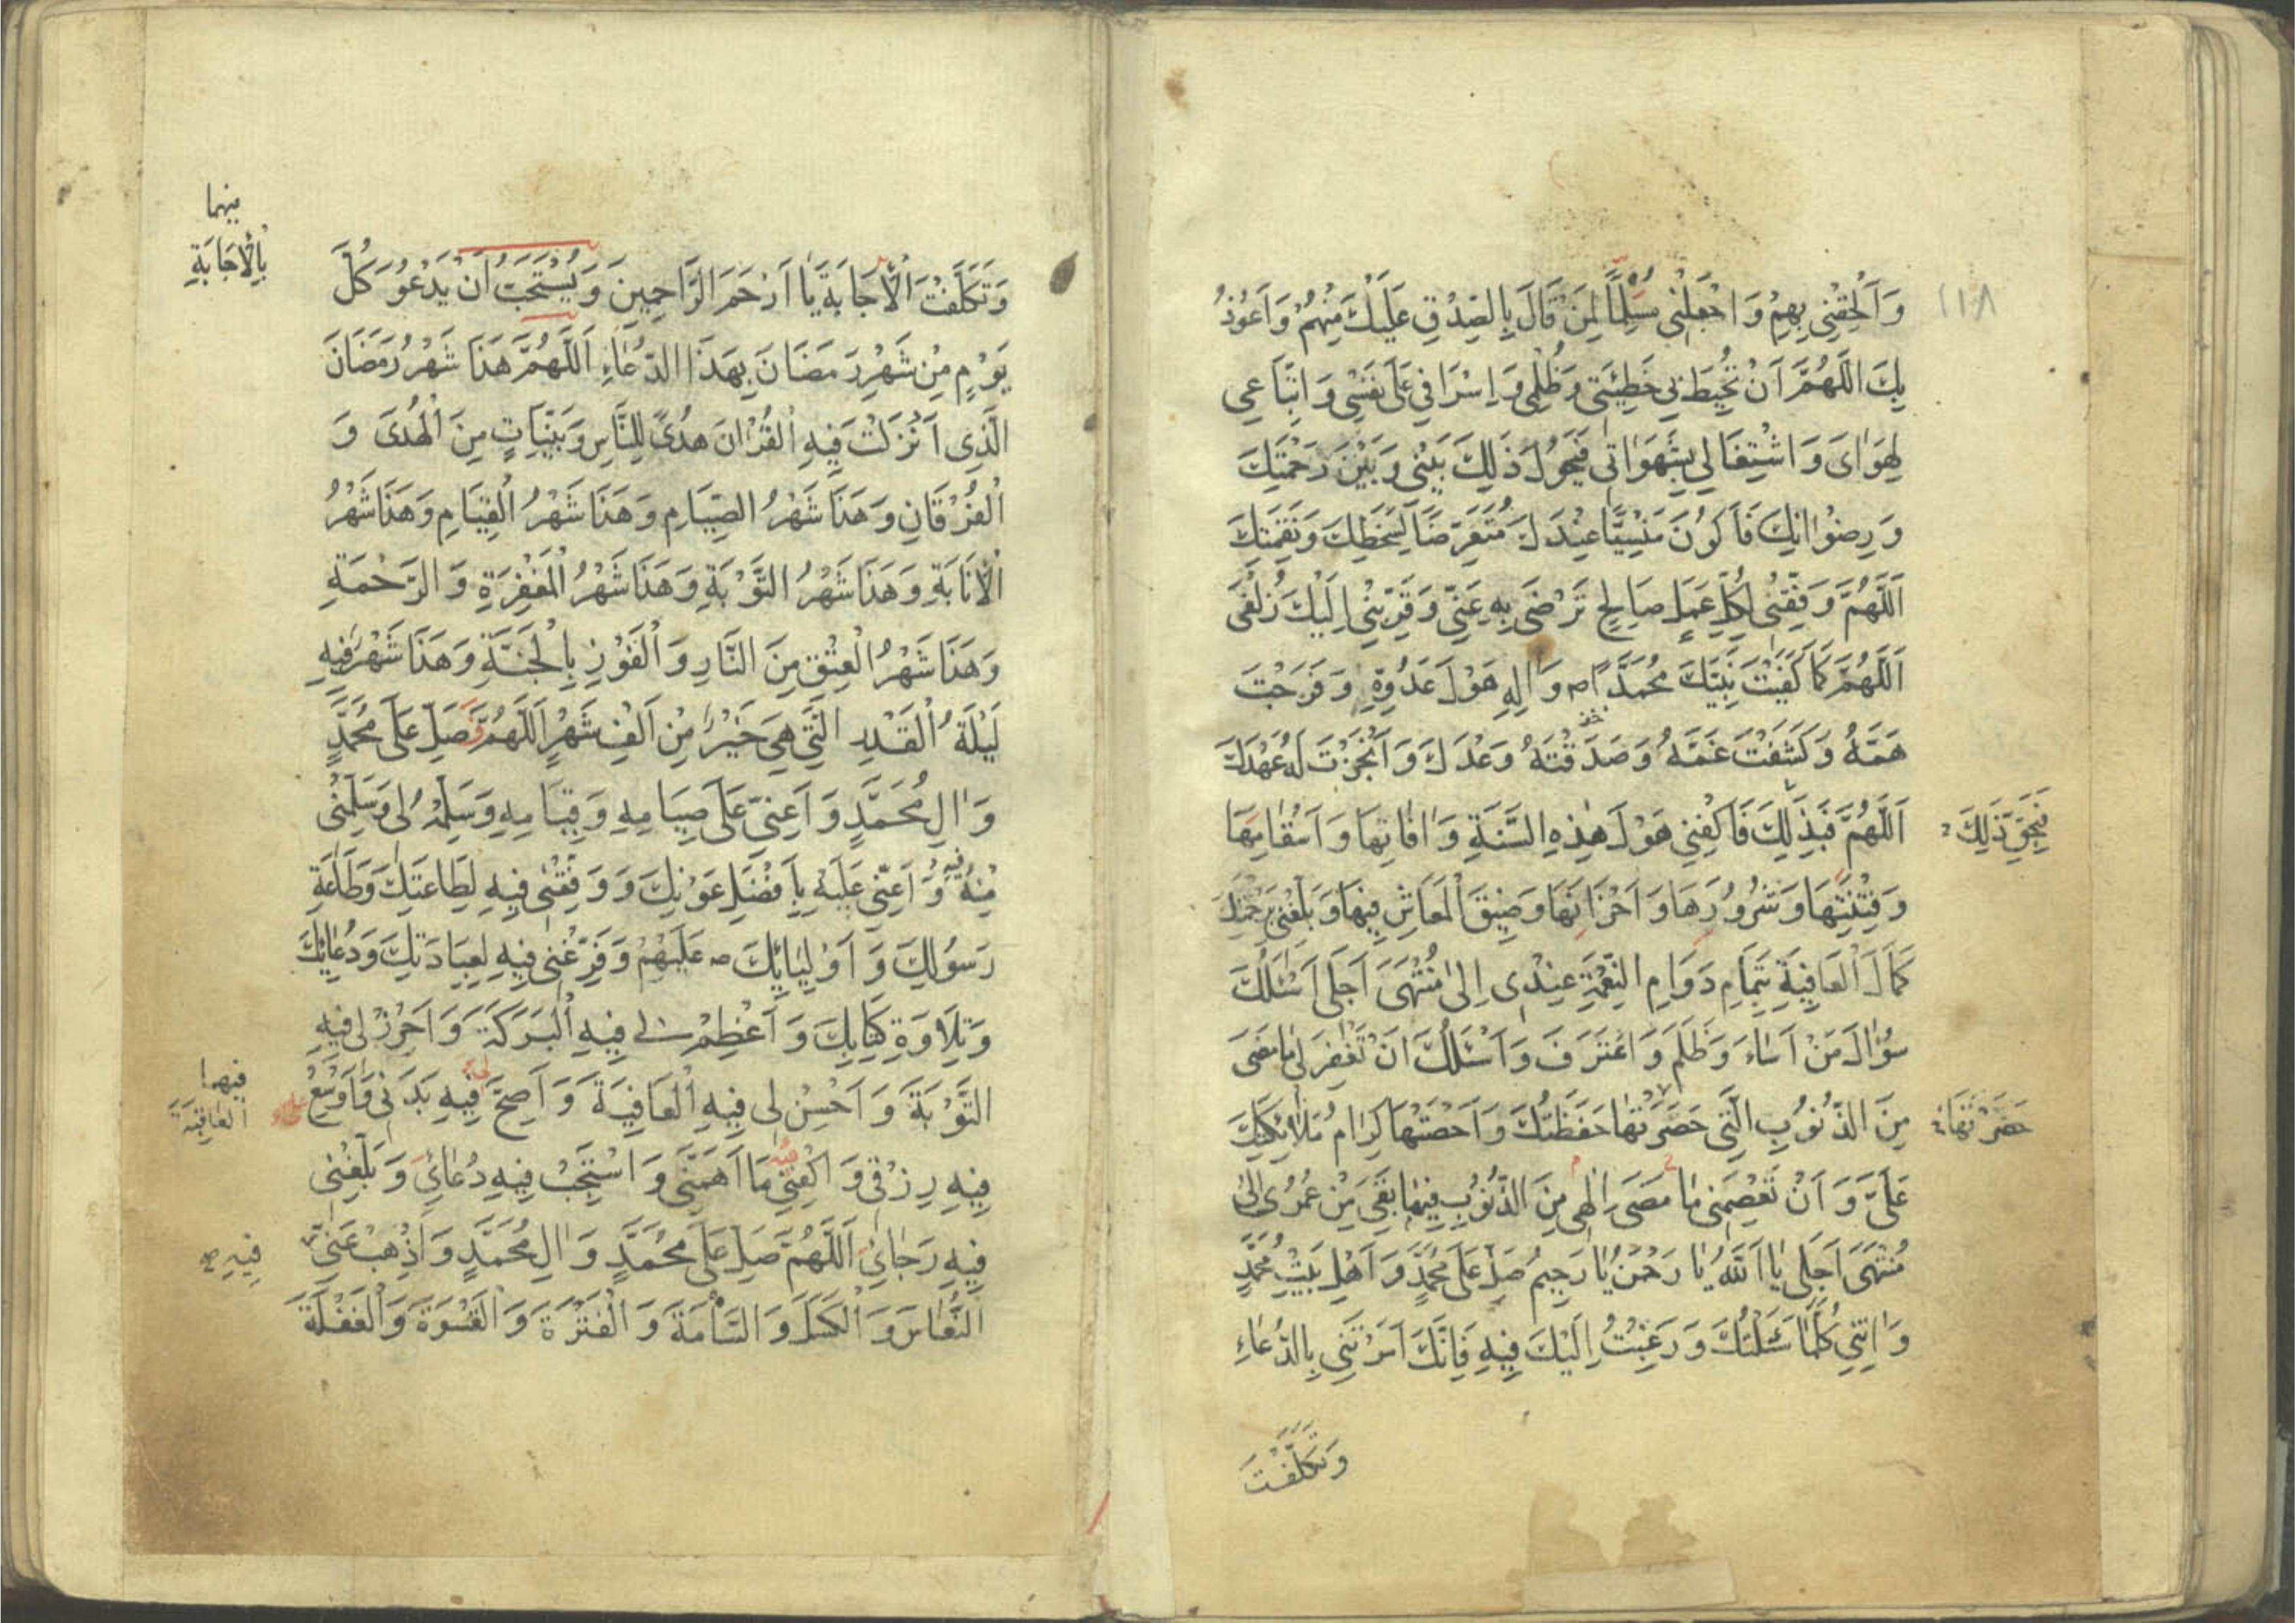 ١١٨
وَاَلْحِقْنِي بِهِمْ وَاجْعَلْنِي مُسَلِّمًا لِمَنْ قَالَ بِالصِّدْقِ عَلَيْكَ مِنْهُمْ وَاَعُوذُ
بِكَ اللَّهُمَّ اَنْ تُحِيطَ بِي خَطِيئَتِي وَظُلْمِي وَاِسْرَافِي عَلَى نَفْسِي وَاتِّبَاعِي
لِهَوَايَ وَاشْتِغَالِي بِشَهَوَاتِي فَيَحُولَ ذَلِكَ بَيْنِي وَبَيْنَ رَحْمَتِكَ
وَرِضْوَانِكَ فَاَكُونَ مَنْسِيًّا عِنْدَكَ مُتَعَرِّضًا لِسَخَطِكَ وَنَقِمَتِكَ
اَللَّهُمَّ وَفِّقْنِي لِكُلِّ عَمَلٍ صَالِحٍ تَرْضَى بِهِ عَنِّي وَقَرِّبْنِي اِلَيْكَ زُلْفَى
اَللَّهُمَّ كَمَا كَفَيْتَ نَبِيَّكَ مُحَمَّدًا ص وَالِهِ هَوْلَ عَدُوِّهِ وَفَرَّجْتَ
هَمَّهُ وَكَشَفْتَ غَمَّهُ وَصَدَقْتَهُ وَعْدَكَ وَاَنْجَزْتَ لَهُ عَهْدَكَ
اَللَّهُمَّ فَبِذَلِكَ فَاكْفِنِي هَوْلَ هَذِهِ السَّنَةِ وَافَاتِهَا وَاَسْقَامِهَا
فَبِحَقِّ ذَلِكَ
وَفِتْنَتِهَا وَشُرُورِهَا وَاَحْزَانِهَا وَضِيقَ الْمَعَاشِ فِيهَا وَبَلِّغْنِي بِرَحْمَتِكَ
كَمَالَ الْعَافِيَةِ بِتَمَامِ دَوَامِ النِّعْمَةِ عِنْدِي اِلَى مُنْتَهَى اَجَلِي اَسْئَلُكَ
سُؤَالَ مَنْ اَسَاءَ وَظَلَمَ وَاعْتَرَفَ وَاَسْئَلُكَ اَنْ تَغْفِرَ لِي مَا مَضَى
مِنَ الذُّنُوبِ الَّتِي حَصَرَتْهَا حَفَظَتُكَ وَاَحْصَتْهَا كِرَامُ مَلَائِكَتِكَ
حَصَرَتْهَا
عَلَيَّ وَاَنْ تَعْصِمَنِي اِلَهِي مِنَ الذُّنُوبِ فِيمَا بَقِيَ مِنْ عُمُرِي اِلَى
مُنْتَهَى اَجَلِي يَا اَللَّهُ يَا رَحْمَنُ يَا رَحِيمُ صَلِّ عَلَى مُحَمَّدٍ وَاَهْلِ بَيْتِ مُحَمَّدٍ
وَاتِنِي كُلَّمَا سَئَلْتُكَ وَرَغِبْتُ اِلَيْكَ فِيهِ فَاِنَّكَ اَمَرْتَنِي بِالدُّعَاءِ
وَتَكَلَّفْتَ
وَتَكَلَّفْتَ الْاِجَابَةَ يَا اَرْحَمَ الرَّاحِمِينَ وَيُسْتَحَبُّ اَنْ يَدْعُوَ كُلَّ
بِالْاِجَابَةِ
يَوْمٍ مِنْ شَهْرِ رَمَضَانَ بِهَذَا الدُّعَاءِ اَللَّهُمَّ هَذَا شَهْرُ رَمَضَانَ
الَّذِي اَنْزَلْتَ فِيهِ الْقُرْانَ هُدًى لِلنَّاسِ وَبَيِّنَاتٍ مِنَ الْهُدَى وَ
الْفُرْقَانِ وَهَذَا شَهْرُ الصِّيَامِ وَهَذَا شَهْرُ الْقِيَامِ وَهَذَا شَهْرُ
الْاِنَابَةِ وَهَذَا شَهْرُ التَّوْبَةِ وَهَذَا شَهْرُ الْمَغْفِرَةِ وَالرَّحْمَةِ
وَهَذَا شَهْرُ الْعِتْقِ مِنَ النَّارِ وَالْفَوْزِ بِالْجَنَّةِ وَهَذَا شَهْرٌ فِيهِ
لَيْلَةُ الْقَدْرِ الَّتِي هِيَ خَيْرٌ مِنْ اَلْفِ شَهْرٍ اَللَّهُمَّ فَصَلِّ عَلَى مُحَمَّدٍ
وَالِ مُحَمَّدٍ وَاَعِنِّي عَلَى صِيَامِهِ وَقِيَامِهِ وَسَلِّمْهُ لِي وَسَلِّمْنِي
مِنْهُ وَاَعِنِّي عَلَيْهِ بِاَفْضَلِ عَوْنِكَ وَوَفِّقْنِي فِيهِ لِطَاعَتِكَ وَطَاعَةِ
رَسُولِكَ وَاَوْلِيَائِكَ ص عَلَيْهِمْ وَفَرِّغْنِي فِيهِ لِعِبَادَتِكَ وَدُعَائِكَ
وَتِلَاوَةِ كِتَابِكَ وَاَعْظِمْ لِي فِيهِ الْبَرَكَةَ وَاَحْرِزْ لِي فِيهِ
التَّوْبَةَ وَاَحْسِنْ لِي فِيهِ الْعَافِيَةَ وَاَصِحَّ فِيهِ بَدَنِي وَاَوْسِعْ
الْعَافِيَةَ
فِيهِ رِزْقِي وَاكْفِنِي مَا اَهَمَّنِي وَاسْتَجِبْ فِيهِ دُعَائِي وَبَلِّغْنِي
فِيهِ رَجَائِي اَللَّهُمَّ صَلِّ عَلَى مُحَمَّدٍ وَالِ مُحَمَّدٍ وَاَذْهِبْ عَنِّي
فِيهِ
النُّعَاسَ وَالْكَسَلَ وَالسَّأْمَةَ وَالْفَتْرَةَ وَالْقَسْوَةَ وَالْغَفْلَةَ